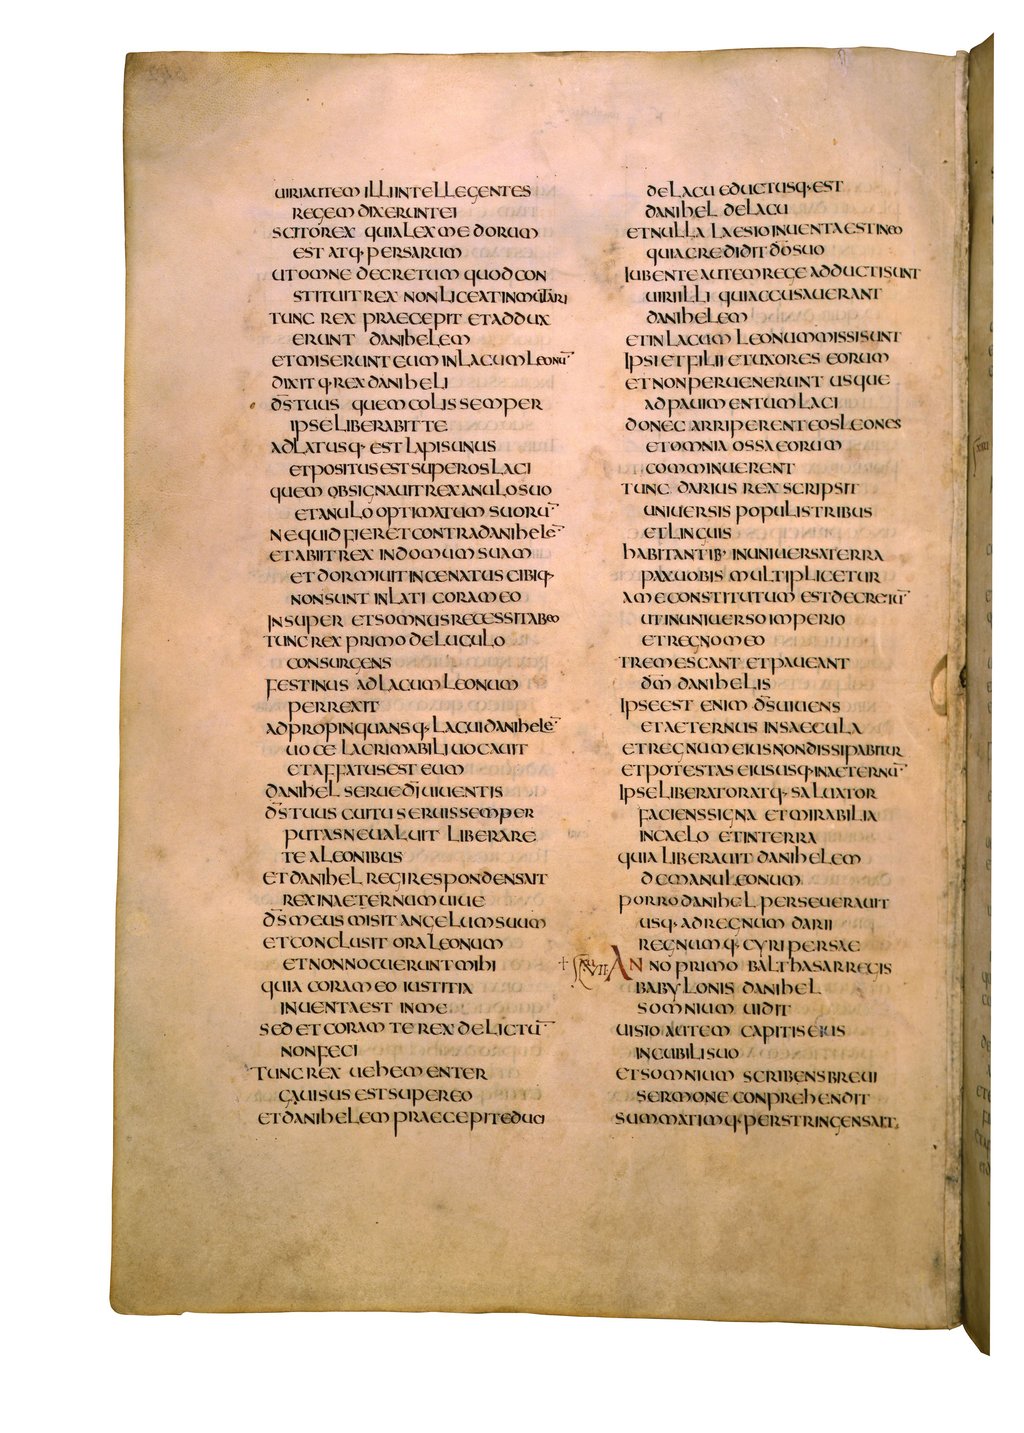 uiri autem illi intellegentes
regem dixerunt ei
scito rex quia lex medorum
est atq· persarum
ut omne decretum quod con
stituit rex non liceat inmutari
tunc rex praecepit et addux
erunt danihelem
et miserunt eum in lacum leonū
dixitq· rex daniheli
d̄s tuus quem colis semper
ipse liberabit te
adlatusq· est lapis unus
et positus est super os laci
quem obsignauit rex anulo suo
et anulo optimatum suorū
ne quid fieret contra danihelē
et abiit rex in domum suam
et dormiuit incenatus cibiq·
non sunt inlati coram eo
insuper et somnus recessit ab eo
tunc rex primo deluculo
consurgens
festinus ad lacum leonum
perrexit
adpropinquansq· lacui danihelē
uoce lacrimabili uocauit
et affatus est eum
danihel serue dī uiuentis
d̄s tuus cui tu seruis semper
putasne ualuit liberare
te a leonibus
et danihel regi respondens ait
rex in aeternum uiue
d̄s meus misit angelum suum
et conclusit ora leonum
et non nocuerunt mihi
quia coram eo iustitia
inuenta est in me
sed et coram te rex delictū
non feci
tunc rex uehementer
gauisus est super eo
et danihelem praecepit educi
de lacu eductusq· est
danihel de lacu
et nulla laesio inuenta est in eo
quia credidit dō suo
iubente autem rege adducti sunt
uiri illi qui accusauerant
danihelem
et in lacum leonum missi sunt
ipsi et filii et uxores eorum
et non peruenerunt usque
ad pauimentum laci
donec arriperent eos leones
et omnia ossa eorum
comminuerent
tunc darius rex scripsit
uniuersis populis tribus
et linguis
habitantib· in uniuersa terra
pax uobis multiplicetur
a me constitutum est decretū
ut in uniuerso imperio
et regno meo
tremescant et paueant
dm̄ danihelis
ipse est enim d̄s uiuens
et aeternus in saecula
et regnum eius non dissipabitur
et potestas eius usq· in aeternū
ipse liberator atq· saluator
faciens signa et mirabilia
in caelo et in terra
quia liberauit danihelem
de manu leonum
porro danihel perseuerauit
usq· ad regnum darii
regnumq· cyri persae
Anno primo balthasar regis
babylonis danihel
somnium uidit
uisio autem capitis eius
in cubili suo
et somnium scribens breui
sermone conprehendit
summatimq· perstringens ait